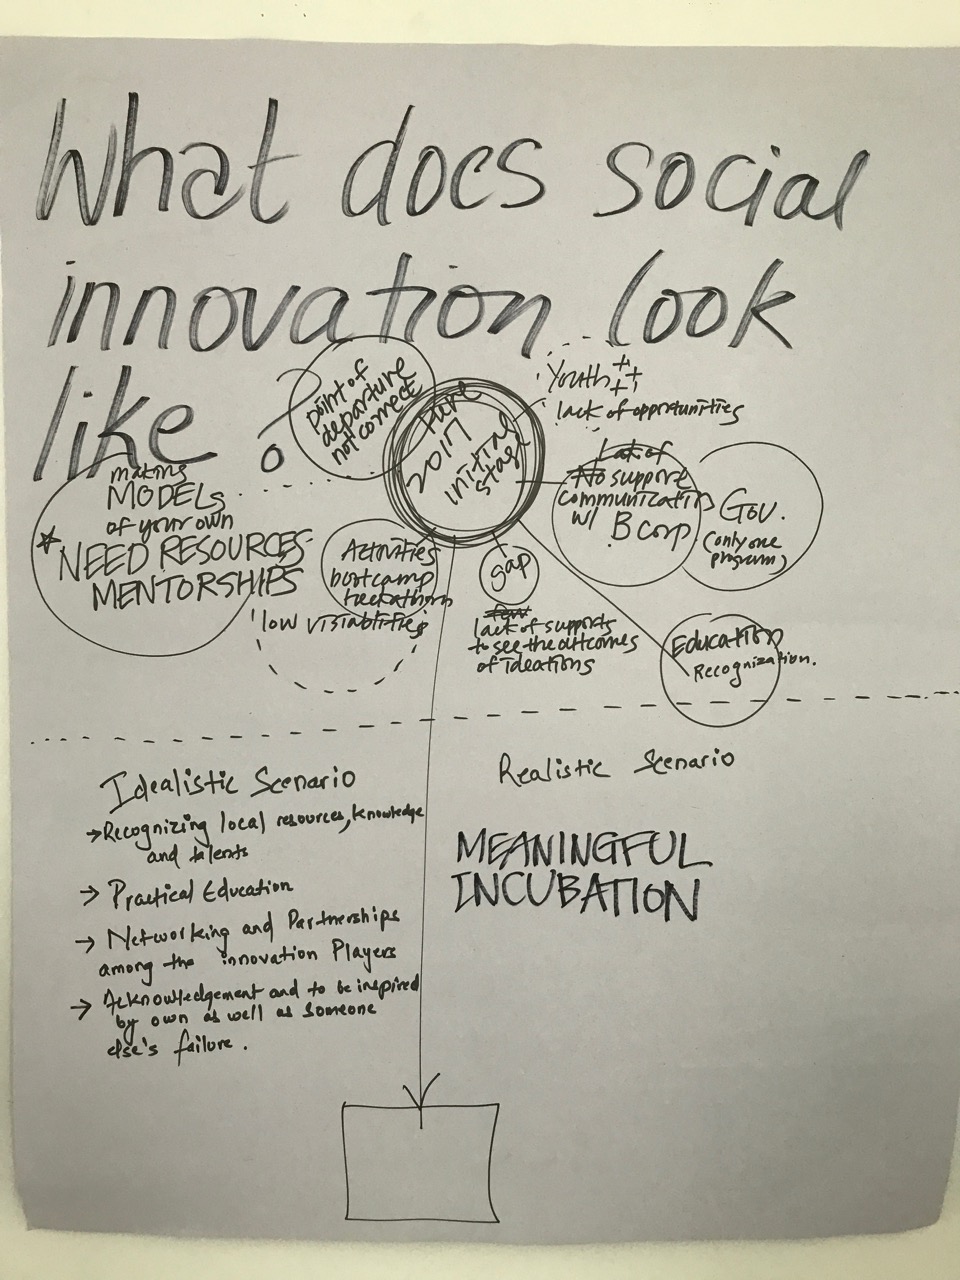 What does social
innovation look
like
?
point of
departure
not correct
2017
initial
stage
Youth +++
lack of opportunities
Lack of
No support
communication
w/ B corp
Gov.
(only one
program)
making
MODELs
of your own
* NEED RESOURCES
MENTORSHIPS
Activities
bootcamp
hackathon
low visiabltifies
gap
few
lack of supports
to see the outcomes
of ideations
Education
Recognization.
Idealistic Scenario
→ Recognizing local resources, knowledge
and talents
→ Practical Education
→ Networking and Partnerships
among the innovation Players
→ Acknowledgement and to be inspired
by own as well as someone
else's failure.
Realistic Scenario
MEANINGFUL
INCUBATION